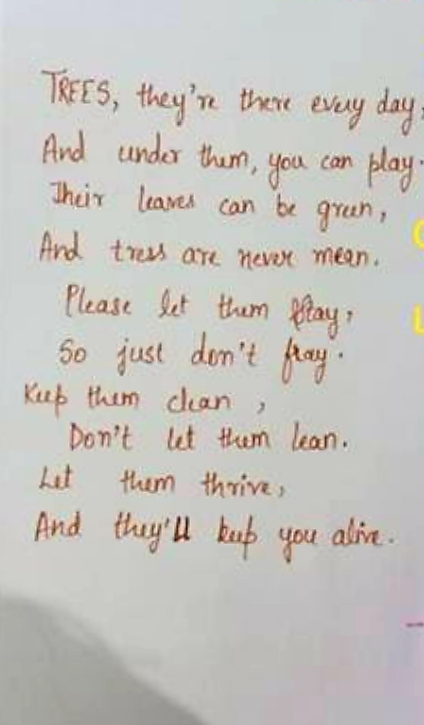 TREES, they're there every day,
And under them, you can play.
Their leaves can be green,
And tress are never mean.
Please let them stay,
So just don't fray.
Keep them clean,
Don't let them lean.
Let them thrive,
And they'll keep you alive.